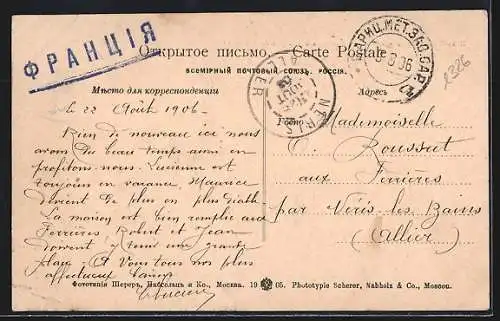 ФРАНЦІЯ
Открытое письмо. Carte Postale
ВСЕМІРНЫЙ ПОЧТОВЫЙ СОЮЗЪ. РОССІЯ.
Мѣсто для корреспонденціи
Адресъ
NERIS
ALLIER
1326
le 22 Août 1906
Rien de nouveau ici nous
avons du beau temps aussi en
profitons-nous. Lucienne est
toujours en vacance, Maurice
devient de plus en plus diable
La maison est bien remplie aux
Ferrières, Robert et Jean
doivent y tenir une grande
place. A Vous tous nos plus
affectueux
Mademoiselle
O. Roussat
aux Ferrières
par Néris les Bains
(Allier)
Фототипія Шереръ, Набгольцъ и Ко., Москва. 19 05. Phototypie Scherer, Nabholz & Co., Moscou.